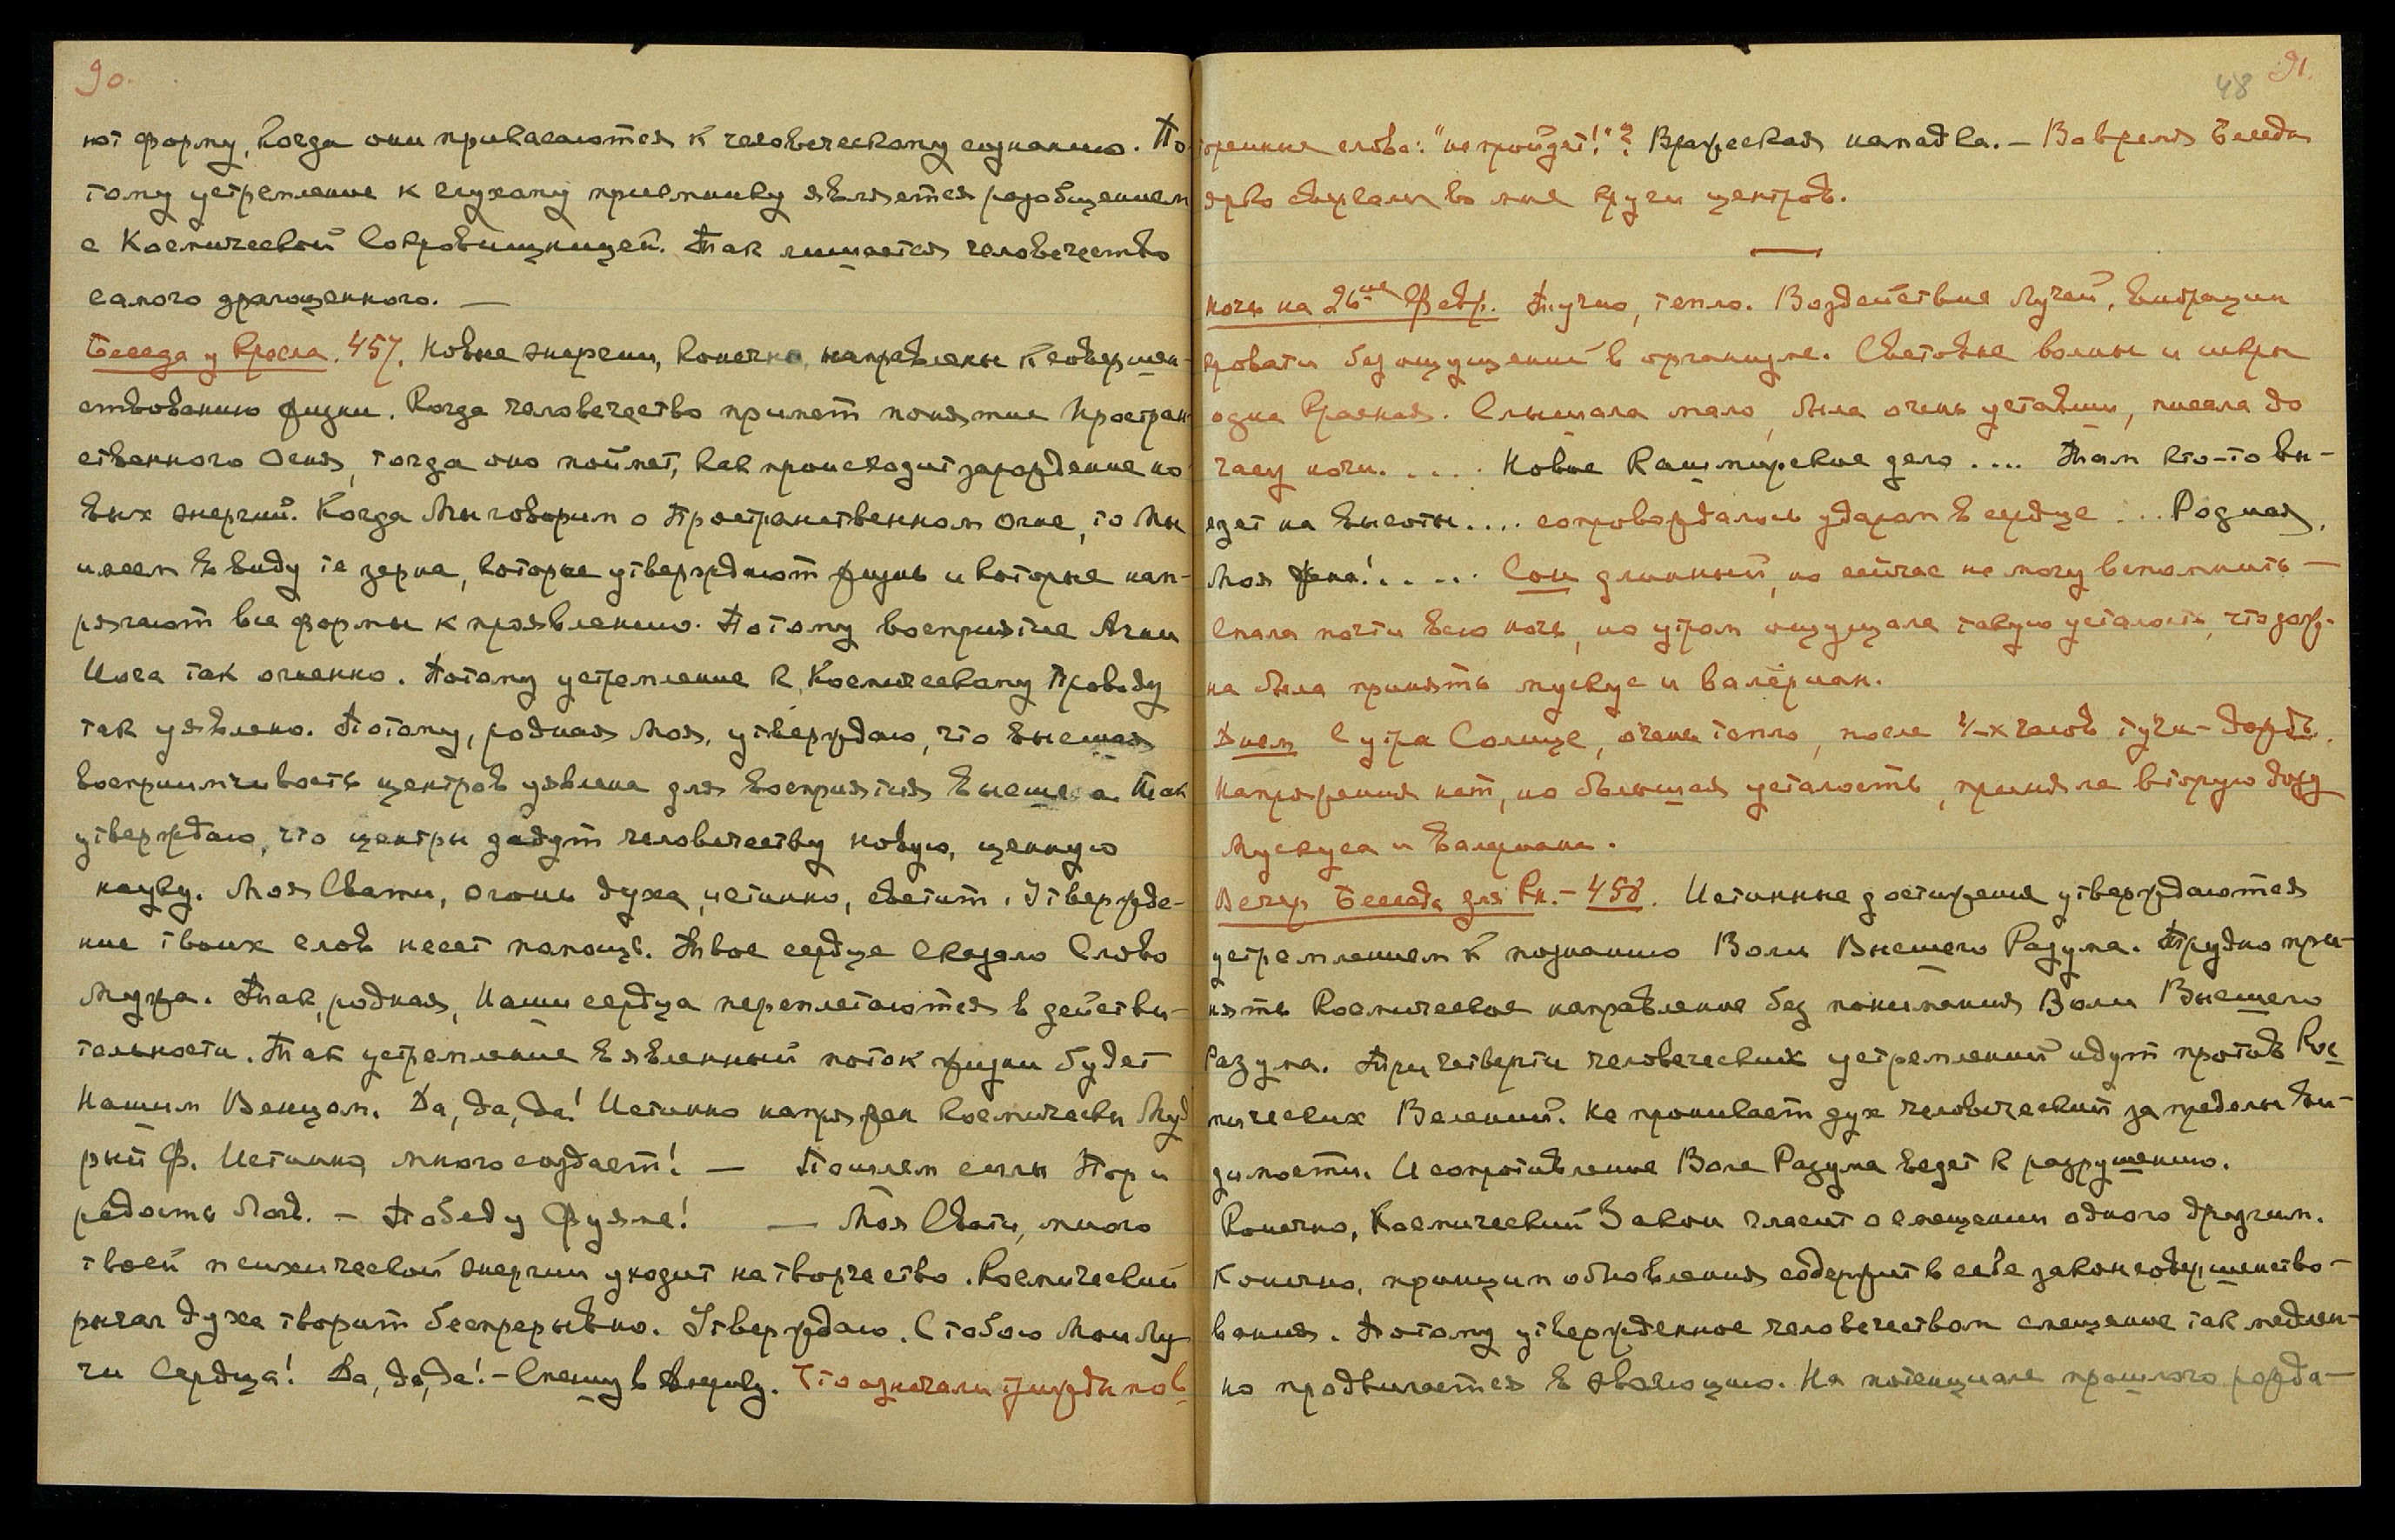 90.
ют форму, когда они прикасаются к человеческому сознанию. По-
тому устремление к глухому приемнику является разобщением
с Космической Сокровищницей. Так лишается человечество
самого драгоценного. —
Беседа у Кресла. 457. Новые энергии, конечно, направлены к совершен-
ствованию жизни. Когда человечество примет понятие Простран-
ственного Огня, тогда оно поймет, как происходит зарождение но-
вых энергий. Когда Мы говорим о Пространственном Огне, то Мы
имеем в виду те зерна, которые утверждают жизнь и которые нап-
рягают все формы к проявлению. Потому восприятие Агни
Йога так огненно. Потому устремление к Космическому Проводу
так уявлено. Потому, родная Моя, утверждаю, что высшая
восприимчивость центров уявлена для восприятия Высшего. Так
утверждаю, что центры дадут человечеству новую, ценную
науку. Моя Свати, огонь духа, истинно, светит. Утвержде-
ние твоих слов несет помощь. Твое сердце сказало Слово
Мужа. Так, родная, Наши сердца переплетаются в действи-
тельности. Так устремление в явленный поток жизни будет
Нашим Венцом. Да, да, да! Истинно напряжен космически Муд-
рый Ф. Истинно, много создает! — Пошлем силы Пор и
радость Лог. — Победу Фуяме! — Моя Свати, много
твоей психической энергии уходит на творчество. Космический
рычаг духа творит беспрерывно. Утверждаю. С тобою Мои Лу-
чи Сердца! Да, да, да! – Спешу в Башню. Что означали трижды пов-
48 91.
торенные слова: "не пройдет!"? Вражеская нападка. – Во время Беседы
ярко сверкали во мне круги центров.
ночь на 26ое Февр. Тучно, тепло. Воздействие Лучей, вибрации
кровати без ощущений в организме. Световые волны и искры
одна Красная. Слышала мало, была очень уставши, писала до
часу ночи. .... Новое Кашмирское дело .... Там кто-то вы-
езжает на высоты.... сопровождалось ударом в сердце ... Родная,
Моя жена!.... Сон длинный, но сейчас не могу вспомнить —
Спала почти всю ночь, но утром ощущала такую усталость, что долж-
на была принять мускус и валериан.
Днем С утра Солнце, очень тепло, после 4-х часов тучи – дождь.
Напряжения нет, но большая усталость, приняла вторую дозу
Мускуса и Валериана.
Вечер Беседа для Кн. – 458. Истинные достижения утверждаются
устремлением к познанию Воли Высшего Разума. Трудно при-
нять Космическое направление без понимания Воли Высшего
Разума. Три четверти человеческих устремлений идут против Кос-
мических Велений. Не проникает дух человеческий за пределы ви-
димости. И сопротивление Воле Разума ведет к разрушению.
Конечно, Космический Закон гласит о смещении одного другим.
Конечно, принцип обновления содержит в себе закон совершенство-
вания. Потому утвержденное человечеством смещение так медлен-
но продвигается в эволюцию. На потенциале прошлого рожда-